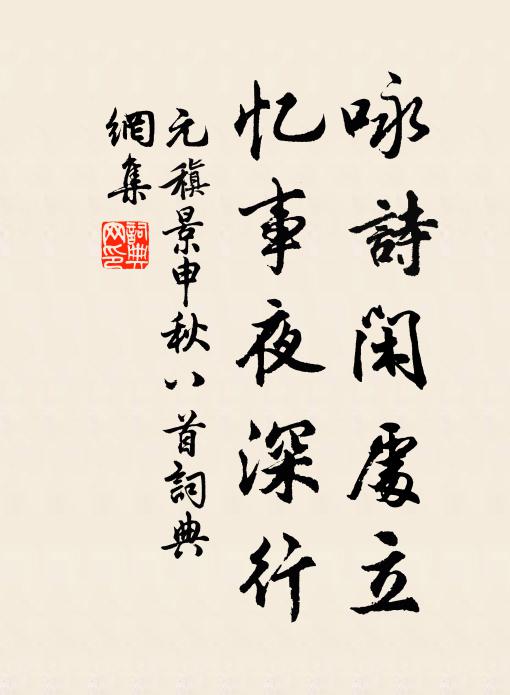 咏詩閑處立
忆事夜深行
元稹景申秋八首詞典
網集
詞典
网印